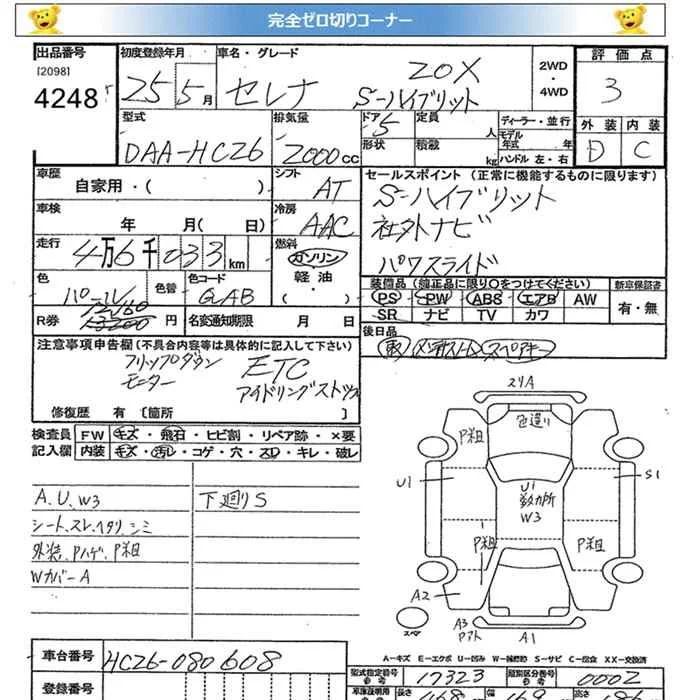 完全ゼロ切りコーナー
出品番号 初度登録年月 車名・グレード 評価点
[2098] 4248 25 5月 セレナ 20X S-ハイブリット 2WD・4WD 3
型式 排気量 ドア 定員 ディーラー・並行 外装 内装
DAA-HC26 2000cc 5 人 モデル年式 年 D C
形状 積載 kg ハンドル 左・右
車歴 シフト セールスポイント (正常に機能するものに限ります)
自家用・( ) AT S-ハイブリット
車検 冷房 社外ナビ
年 月( 日) AAC パワスライド
走行 燃料
4万6千033km ガソリン 軽油・( )
色 色替 色コード 装備品 (純正品に限り○をつけてください) 新車保証書
パール QAB PS PW ABS エアB AW 有・無
R券 13200 12460 円 名変通知期限 月 日 SR ナビ TV カワ
後日品
注意事項申告欄 (不具合内容等は具体的に記入して下さい)
フリップダウンモニター ETC
アイドリングストップ
修復歴 有 [箇所 ]
検査員記入欄 FW キズ・飛石・ヒビ割・リペア跡・×要
内装 キズ・汚レ・コゲ・穴・スレ・キレ・破レ
A、U、W3 下廻りS
シート、スレ、ヘタリ、シミ
外装、Pハゲ、P粗
WカバーA
スリA
色違い
P粗
U1 S1
U1 数カ所 W3
P粗 P粗
A2
スペア A3 A1
A-キズ E-エクボ U-凹み W-補修跡 S-サビ C-腐食 XX-交換済
車台番号 HC26-080608
型式指定番号 17323 類別区分番号 0002
登録番号
長さ 468